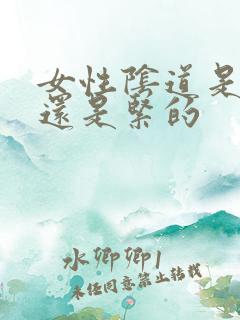 女性陰道是
還是緊的
水卿卿1
未任同意禁止转载